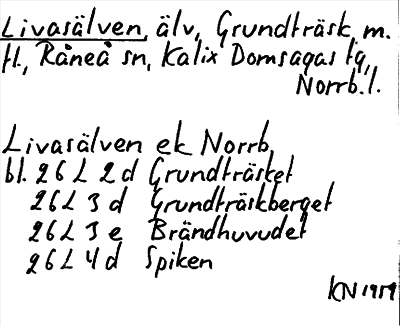 Livasälven, älv, Grundträsk, m.
fl., Råneå sn, Kalix Domsagas tg,
Norrb. l.
Livasälven ek Norrb.
bl. 26L 2d Grundträsket
26L 3d Grundträskberget
26L 3e Brändhuvudet
26L 4d Spiken
KN 1959